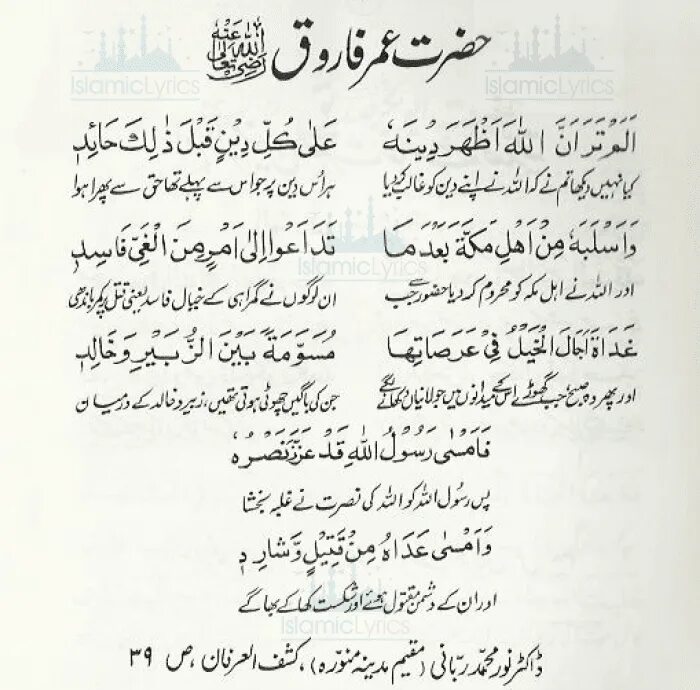 حضرت عمر فاروق رضی اللہ تعالیٰ عنہ
IslamicLyrics IslamicLyrics
اَلَمْ تَرَ اَنَّ اللهَ اَظْهَرَ دِينَهٗ عَلٰى كُلِّ دِيْنٍ قَبْلَ ذٰلِكَ حَائِدٖ
کیا نہیں دیکھا تم نے کہ اللہ نے اپنے دین کو غالب کر دیا ہر اُس دین پر جو اس سے پہلے تھا حق سے پھرا ہوا
وَاَسْلَبَهٗ مِنْ اَهْلِ مَكَّةَ بَعْدَ مَا تَدَاعَوْا اِلٰى اَمْرٍ مِنَ الْغَيِّ فَاسِدٖ
IslamicLyrics
اور اللہ نے اہل مکہ کو محروم کر دیا حضور سے جب ان لوگوں نے گمراہی کے خیال فاسد یعنی قتل پر کمر باندھی
غَدَاةَ اَجَالَ الْخَيْلُ فِيْ عَرَصَاتِهَا مُسَوَّمَةً بَيْنَ الزُّبَيْرِ وَخَالِدٖ
اور پھر وہ صبح جب گھوڑے اس کے میدانوں میں جولانیاں دکھانے لگے جن کی باگیں چھوٹی ہوتی تھیں، زبیر و خالد کے درمیان
فَاَمْسٰى رَسُوْلُ اللهِ قَدْ عَزَّ نَصْرُهٗ
پس رسول اللہ کو اللہ کی نصرت نے غلبہ بخشا
وَاَمْسٰى عَدَاهُ مِنْ قَتِيْلٍ وَّشَارِدٖ
اور ان کے دشمن مقتول ہوئے اور شکست کھا کے بھاگے
IslamicLyrics
ڈاکٹر نور محمد ربانی (مقیم مدینہ منورہ)، کشف العرفان، ص ۳۹